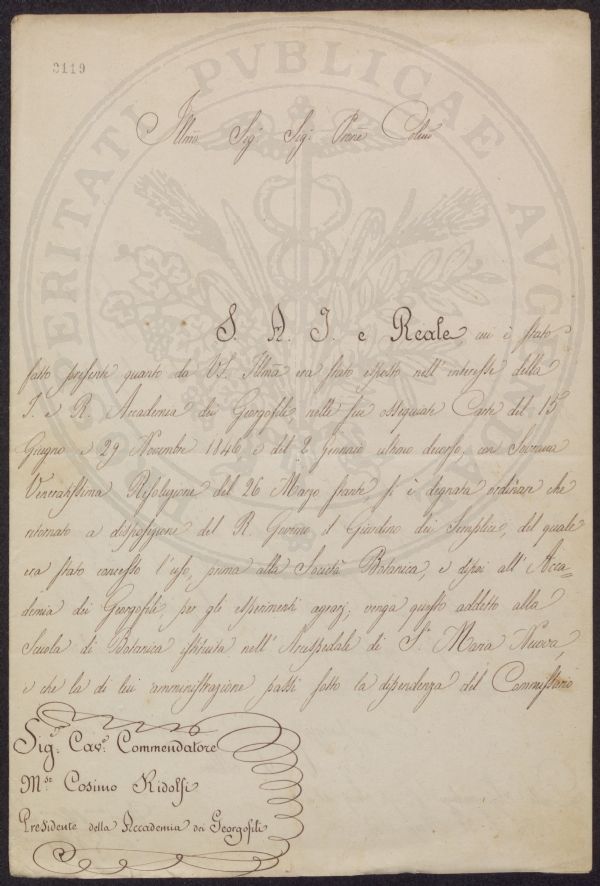 3119
PROSPERITATI PVBLICAE AVGENDAE
Illmo Sig.r Sig.r Prone Colmo
S. A. I. e Reale cui è stato
fatto presente quanto da VS. Illma era stato esposto nell'interesse della
I. e R. Accademia dei Georgofili, nelle sue ossequiate Carte del 15
Giugno e 29 Novembre 1846, e del 2 Gennaio ultimo decorso, con Sovrana
Veneratissima Resoluzione del 26 Marzo stante, si è degnata ordinare che
ritornato a disposizione del R. Governo il Giardino dei Semplici, del quale
era stato concesso l'uso, prima alla Società Botanica, e dipoi all'Acca=
demia dei Georgofili, per gli esperimenti agrarj; venga questo addetto alla
Scuola di Botanica istituita nell'Arcispedale di S.a Maria Nuova,
e che la di lui amministrazione passi sotto la dipendenza del Commissario
Sig.r Cav.e Commendatore
M.se Cosimo Ridolfi
Presidente della Accademia dei Georgofili